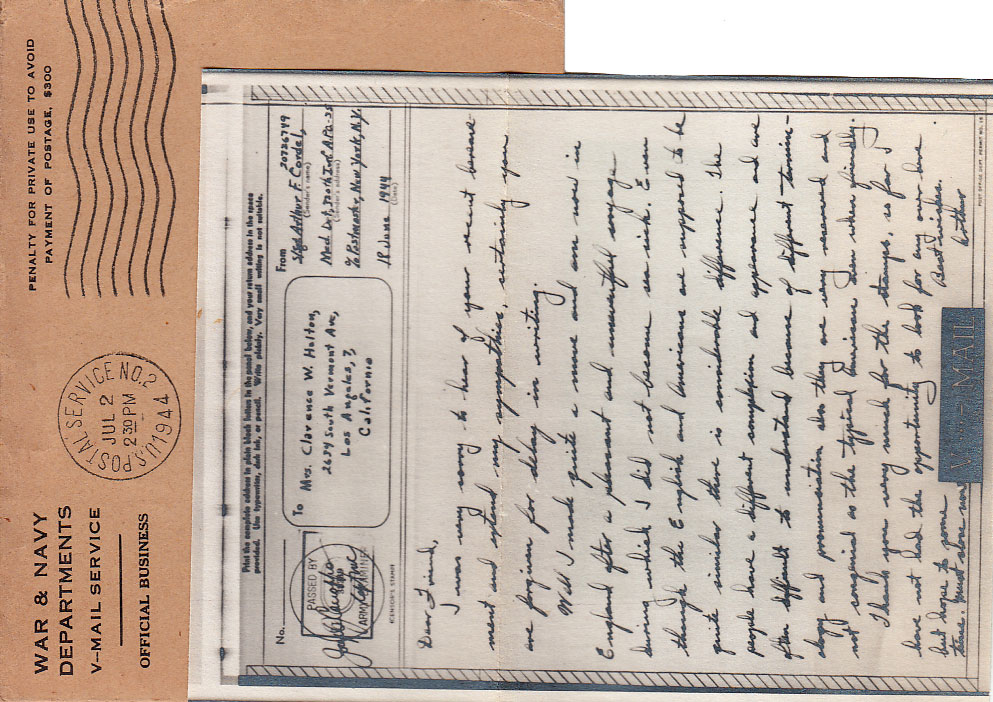 WAR & NAVY
DEPARTMENTS
V–MAIL SERVICE
OFFICIAL BUSINESS
U.S. POSTAL SERVICE NO. 2
JUL 2
2 30 PM
1944
PENALTY FOR PRIVATE USE TO AVOID
PAYMENT OF POSTAGE, $300
Print the complete address in plain block letters in the panel below, and your return address in the space
provided. Use typewriter, dark ink, or pencil. Write plainly. Very small writing is not suitable.
No.
PASSED BY
ARMY EXAMINER
(CENSOR'S STAMP)
To
Mrs. Clarence W. Halton,
2674 South Vermont Ave,
Los Angeles, 7
California
From
Arthur F. Cordel, 20726749
(Sender's name)
Med. Det, Inf. A.P.O.-35
(Sender's address)
% Postmaster, New York, N.Y.
18 June 1944
(Date)
Dear Friend,
I was very sorry to hear of your recent bereave-
ment and extend my sympathies, certainly you
are forgiven for delay in writing.
Well I made quite a move and am now in
England after a pleasant and uneventful voyage
during which I did not become sea sick. Even
though the English and Americans are supposed to be
quite similar there is considerable difference. The
people have a different complexion and appearance and are
often difficult to understand because of different termin-
ology and pronunciation also they are very reserved and
not congenial as the typical American even when friendly.
Thank you very much for the stamps, so far I
have not had the opportunity to look for any over here
but hope to some
time. Must close now
Best wishes.
Arthur
V··· — MAIL
POST OFFICE DEPT. PERMIT NO.